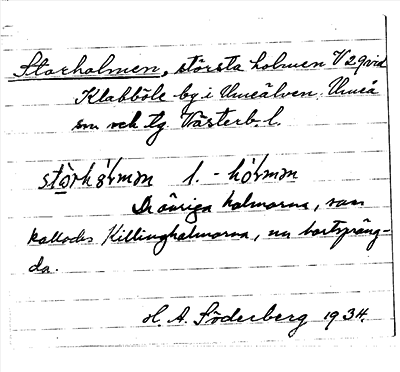 Storholmen, största holmen V 29 vid
Klabböle by i Umeälven. Umeå
sn och tg Västerb. l.
l. -
De övriga holmarna, som
kallades Killingholmarna, nu bortspräng-
da.
H. A. Söderberg 1934.